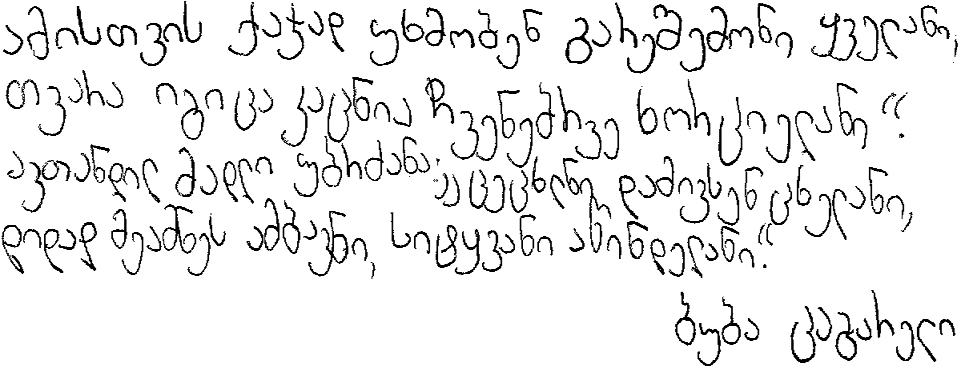 ამისთვის ქაჯად უხმობენ გარეშემონი ყველანი,
თვარა იგიცა კაცნია ჩვენებრვე ხორციელანი“.
ავთანდილ მადლი უბრძანა: „ცეცხლნი დამივსენ ცხელანი,
დიდად მეამნეს ამბავნი, სიტყვანი აწინდელანი.“
ბუბა ცაგარელი